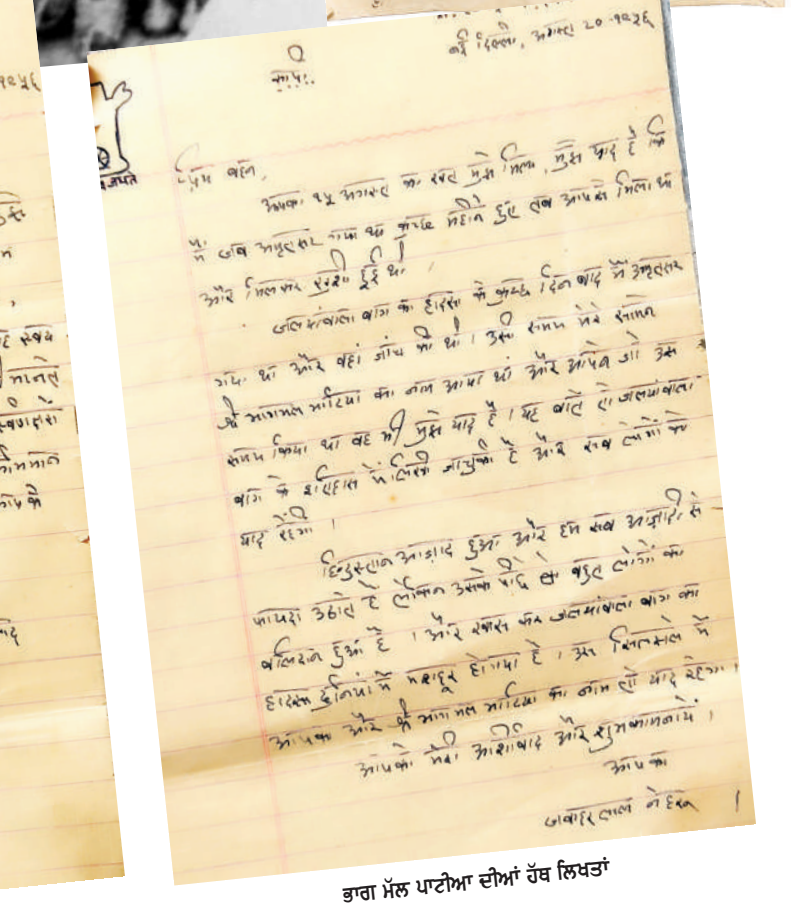 कापी
नई दिल्ली, अगस्त २० १९५६
प्रिय बहन,
आपका १५ अगस्त का खत मुझे मिला, मुझे याद है कि
मैं जब अमृतसर गया था कुच्छ महीने हुए तब आपसे मिला था
और मिलकर खुशी हुई थी ।
जलियांवाला बाग का हादसा के कुच्छ दिन बाद मैं अमृतसर
गया था और वहां जांच की थी । उसी समय मेरे सामने
श्री भागमल भाटिया का नाम आया था और आपने जो उस
समय किया था वह भी मुझे याद है । यह बातें तो जलयांवाला
बाग के इतिहास में लिखी जाचुकी है और सब लोगों को
याद रहेंगी ।
हिन्दुस्तान आज़ाद हुआ और हम सब आज़ादी से
फायदा उठाते हैं लेकिन उसके पीछे बहुत लोगों का
बलिदान हुआ है । और खास कर जलयांवाला बाग का
हादसा दुनियां में मशहूर होगया है । उस सिलसले में
आपका और श्री भागमल भाटिया का नाम तो याद रहेगा ।
आपको मेरी आशीर्वाद और शुभकामनायें ।
आपका
जवाहर लाल नेहरू ।
ਭਾਗ ਮੱਲ ਪਾਟੀਆ ਦੀਆਂ ਹੱਥ ਲਿਖਤਾਂ